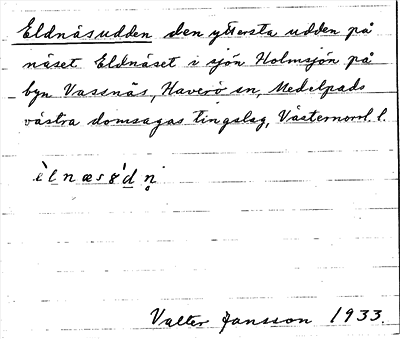 Eldnäsudden den yttersta udden på
näset Eldnäset i sjön Holmsjön på
byn Vassnäs, Haverö sn, Medelpads
västra domsagas tingslag, Västernorrl. l.
Valter Jansson 1933.